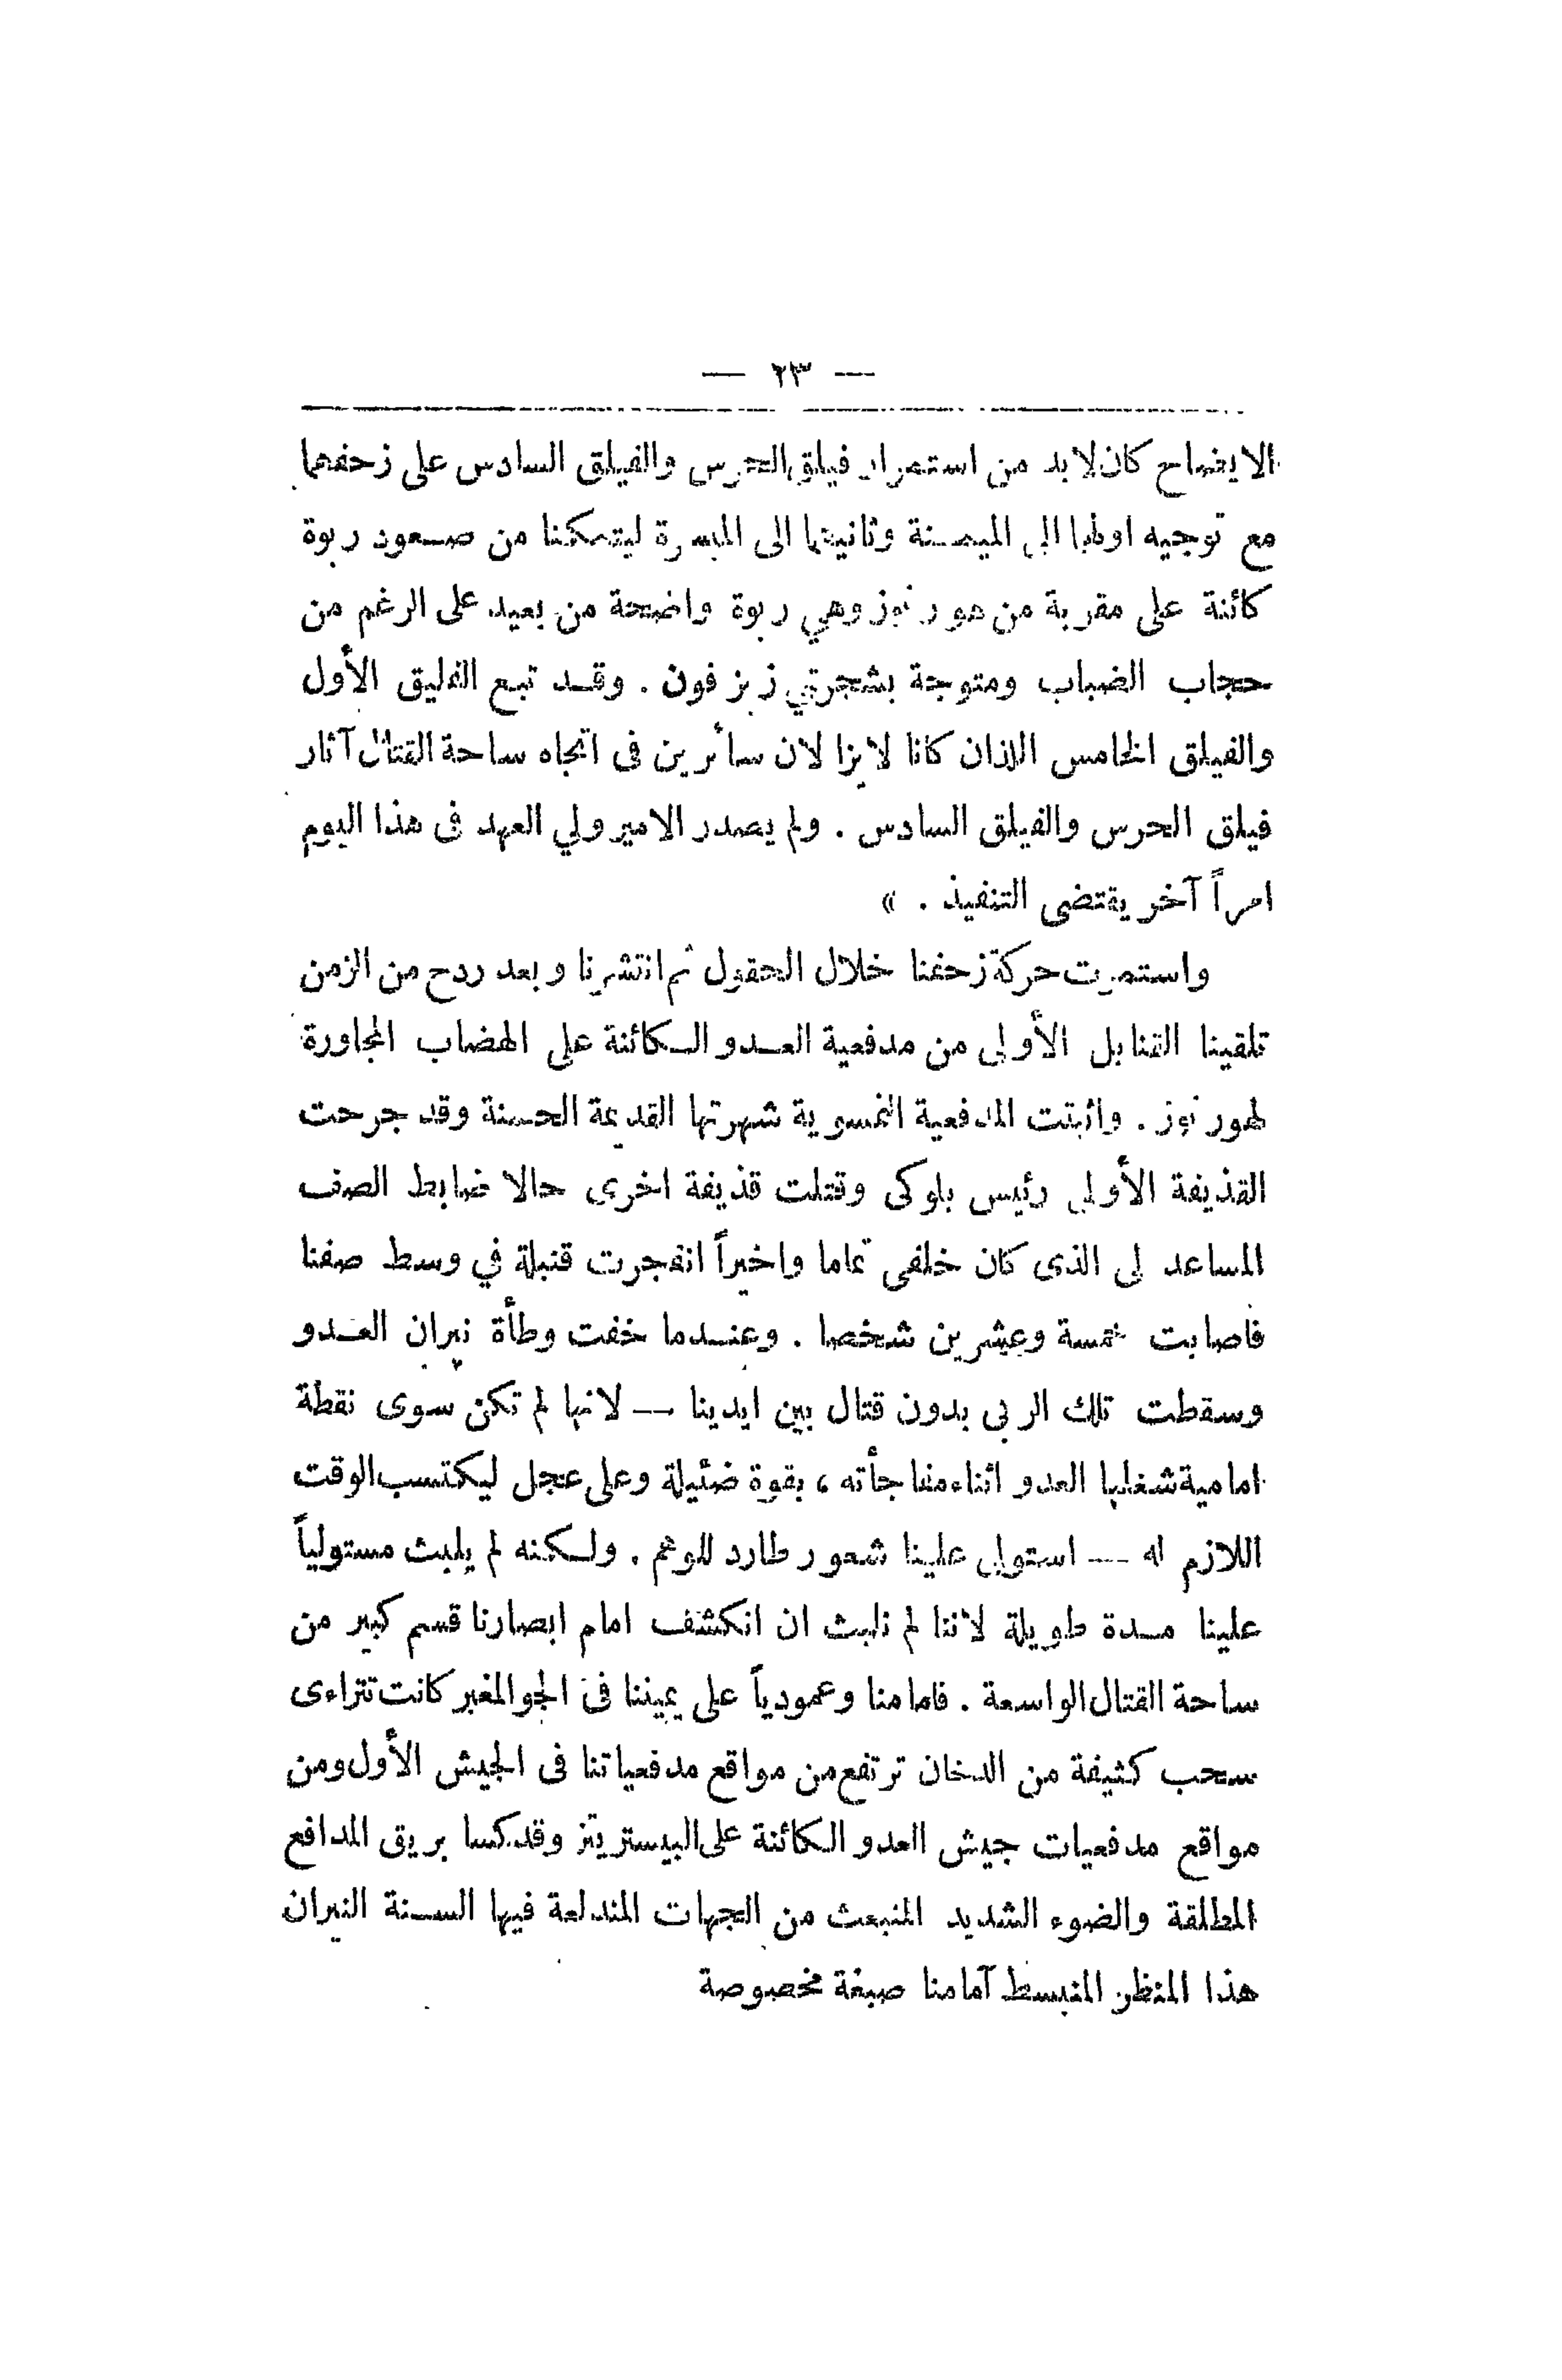 — ٢٣ —
الايضاح كان لا بد من استمرار فيلق الحرس والفيلق السادس على زحفهما
مع توجيه اولها الى الميمنة وثانيتها الى الميسرة ليتمكنا من صعود ربوة
كائنة على مقربة من هورنوز وهي ربوة واضحة من بعيد على الرغم من
حجاب الضباب ومتوجة بشجرتي زيزفون . وقد تبع الفليق الأول
والفيلق الخامس اللذان كانا لا يزالان سائرين فى اتجاه ساحة القتال آثار
فيلق الحرس والفيلق السادس . ولم يصدر الامير ولي العهد فى هذا اليوم
امراً آخر يقتضى التنفيذ . »
واستمرت حركة زحفنا خلال الحقول ثم انتشرنا وبعد ردح من الزمن
تلقينا القنابل الأولى من مدفعية العدو الكائنة على الهضاب المجاورة
لهورنوز . واثبتت المدفعية النمسوية شهرتها القديمة الحسنة وقد جرحت
القذيفة الأولى رئيس بلوكى وقتلت قذيفة اخرى حالا ضابط الصف
المساعد لى الذى كان خلفى تماما واخيراً انفجرت قنبلة في وسط صفنا
فاصابت خمسة وعشرين شخصا . وعندما خفت وطأة نيران العدو
وسقطت تلك الربى بدون قتال بين ايدينا — لانها لم تكن سوى نقطة
امامية شغلها العدو اثناء مفاجأته ، بقوة ضئيلة وعلى عجل ليكتسب الوقت
اللازم له — استولى علينا شعور طارد للوهم . ولكنه لم يلبث مستولياً
علينا مدة طويلة لاننا لم نلبث ان انكشف امام ابصارنا قسم كبير من
ساحة القتال الواسعة . فامامنا وعمودياً على يميننا فى الجو المغبر كانت تتراءى
سحب كثيفة من الدخان ترتفع من مواقع مدفعياتنا فى الجيش الأول ومن
مواقع مدفعيات جيش العدو الكائنة على البيستريتز وقد كسا بريق المدافع
المطلقة والضوء الشديد المنبعث من الجهات المندلعة فيها السنة النيران
هذا المنظر المنبسط آمامنا صبغة مخصوصة